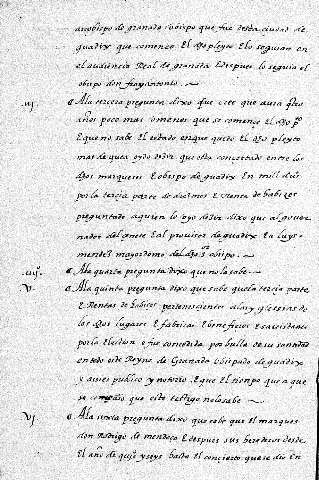 arçobispo de granada obispo que fue desta ciudad de
guadix que començo El dho pleyto E lo seguian en
el audiencia Real de granada E despues lo seguia el
obispo don fray antonio
.iij. A la tercera pregunta dixo que cree que aura
años poco mas o menos que se començo El dho pto
E que no sabe El estado en que quedo El dho pleyto
mas de que a oydo dezir que esta concertado entre los
dhos marqueses E obispo de guadix En mill dus
por la tercia parte de diezmos E Renta de habizes
preguntado a quien lo oyo dezir dixo que al gover
nador del çenete E al provisor de guadix E a luys
mendez mayordomo del dho sor obispo
.iiijº. A la quarta pregunta dixo que no la sabe
V. A la quinta pregunta dixo que sabe que la tercia parte
E Rentas de habizes pertenescientes a las yglesias de
los dhos lugares E fabricas E beneficios E sacristanias
por la Eleccion e fue concedida por bulla de su santidad
en todo este Reyno de Granada obispado de guadix
y asi es publico y notorio E que El tienpo que a que
se este testigo no lo sabe
Vj A la sexta pregunta dixo que sabe que El marques
don Rodrigo de mendoça E despues sus herederos desde
El año de quis y seys hasta El concierto que se dio En